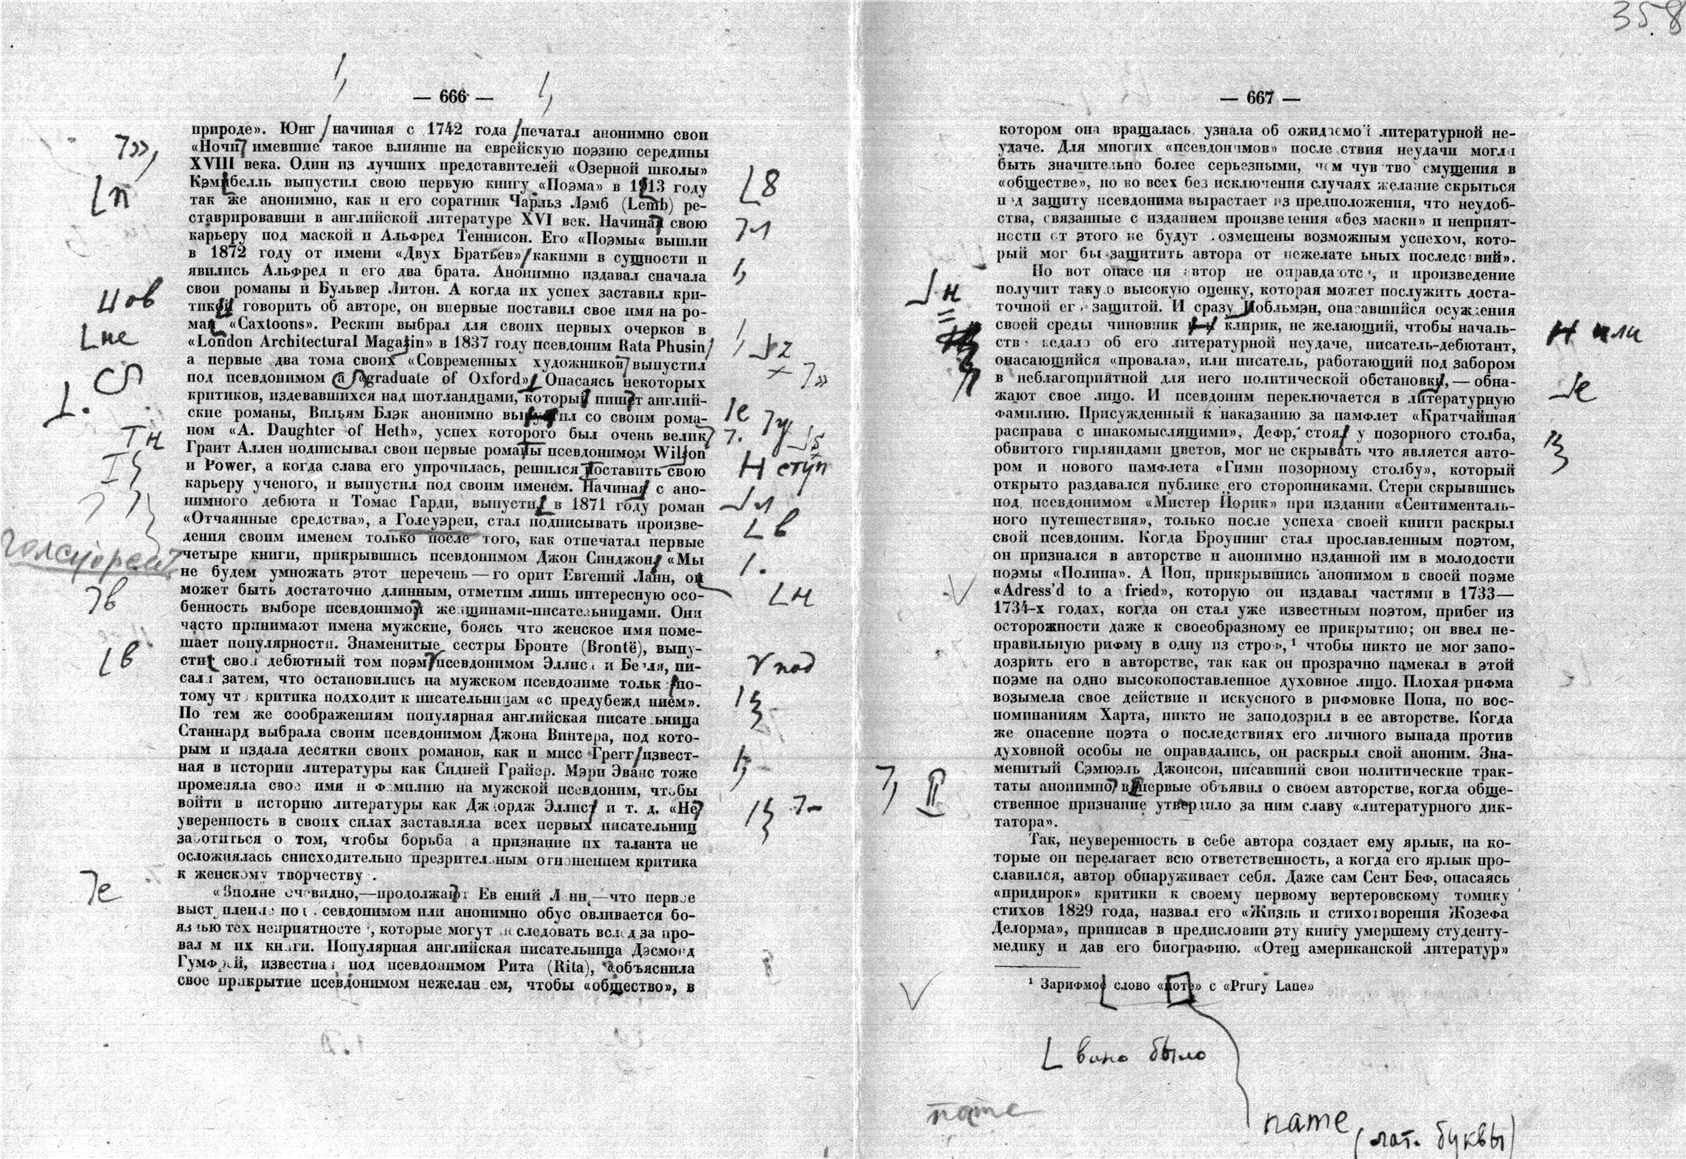 358
— 666 —
природе». Юнг начиная с 1742 года печатал анонимно свои
«Ночи имевшие такое влияние на еврейскую поэзию середины
XVIII века. Один из лучших представителей «Озерной школы»
Кэмпбелль выпустил свою первую книгу «Поэма» в 1913 году
так же анонимно, как и его соратник Чарльз Лэмб (Lemb) ре-
ставрировавши в английской литературе XVI век. Начинал свою
карьеру под маской и Альфред Теннисон. Его «Поэмы« вышли
в 1872 году от имени «Двух Братьев» какими в сущности и
явились Альфред и его два брата. Анонимно издавал сначала
свои романы и Бульвер Литон. А когда их успех заставил кри-
тикой говорить об авторе, он впервые поставил свое имя на ро-
ман «Caxtoons». Рескин выбрал для своих первых очерков в
«London Architectural Magazin» в 1837 году псевдоним Rata Phusin
а первые два тома своих «Современных художников выпустил
под псевдонимом a graduate of Oxford» Опасаясь некоторых
критиков, издевавшихся над шотландцами, который пишет англий-
ские романы, Вильям Блэк анонимно выпустил со своим рома-
ном «A. Daughter of Heth», успех которого был очень велик
Грант Аллен подписывал свои первые романы псевдонимом Wilson
и Power, а когда слава его упрочилась, решился оставить свою
карьеру ученого, и выпустил под своим именем. Начинал с ано-
нимного дебюта и Томас Гарди, выпустил в 1871 году роман
«Отчаянные средства», а Голсуэреи, стал подписывать произве-
дения своим именем только после того, как отпечатал первые
четыре книги, прикрывшись псевдонимом Джон Синджон «Мы
не будем умножать этот перечень — го орит Евгений Ланн, он
может быть достаточно длинным, отметим лишь интересную осо-
бенность выборе псевдонимов женщинами-писательницами. Они
часто принимают имена мужские, боясь что женское имя поме-
шает популярности. Знаменитые сестры Бронте (Brontë), выпу-
стив свой дебютный том поэм псевдонимом Эллис и Белля, пи-
сали затем, что остановились на мужском псевдониме только по-
тому что критика подходит к писательницам «с предубежд нием».
По тем же соображениям популярная английская писате ьница
Станнард выбрала своим псевдонимом Джона Винтера, под кото-
рым и издала десятки своих романов, как и мисс Грегг известн-
ная в истории литературы как Сидней Грайер. Мэри Эванс тоже
променяла свое имя и фамилию на мужской псевдоним, чтобы
войти в историю литературы как Джордж Эллист и т. д. «Не
уверенность в своих силах заставляла всех первых писательниц
заботиться о том, чтобы борьба за признание их таланта не
осложнялась снисходительно презрительным отношением критика
к женскому творчеству.
«Вполне очевидно,—продолжает Ев ений Л нн,—что первое
выст пление под псевдонимом или анонимно обус овливается бо-
язнью тех неприятносте , которые могут последовать вслед за про-
вал м их книги. Популярная английская писательница Дэсмонд
Гумфрей, известная под псевдонимом Рита (Rita), объяснила
свое прикрытие псевдонимом нежелан ем, чтобы «общество», в
— 667 —
котором она вращалась, узнала об ожидаемой литературной не-
удаче. Для многих «псевдонимов» последствия неудачи могли
быть значительно более серьезными, чем чувство смущения в
«обществе», но во всех без исключения случаях желание скрыться
под защиту псевдонима вырастает из предположения, что неудоб-
ства, связанные с изданием произведения «без маски» и неприят-
ности от этого не будут возмещены возможным успехом, кото-
рый мог бы защитить автора от нежелате ьных последствий».
Но вот опасения автор не оправдаются, и произведение
получит такую высокую оценку, которая может послужить доста-
точной его защитой. И сразу Нобльмэн, опасавшийся осуждения
своей среды чиновник клирик, не желающий, чтобы началь-
ство ведало об его литературной неудаче, писатель-дебютант,
опасающийся «провала», или писатель, работающий под забором
в неблагоприятной для него политической обстановки, — обна-
жают свое лицо. И псевдоним переключается в литературную
фамилию. Присужденный к наказанию за памфлет «Кратчайшая
расправа с инакомыслящими», Дефо, стоял у позорного столба,
обвитого гирляндами цветов, мог не скрывать что является авто-
ром и нового памфлета «Гимн позорному столбу», который
открыто раздавался публике его сторонниками. Стерн скрывшись
под псевдонимом «Мистер Йорик» при издании «Сентименталь-
ного путешествия», только после успеха своей книги раскрыл
свой псевдоним. Когда Броунинг стал прославленным поэтом,
он признался в авторстве и анонимно изданной им в молодости
поэмы «Полина». А Поп, прикрывшись анонимом в своей поэме
«Adress'd to a fried», которую он издавал частями в 1733—
1734-х годах, когда он стал уже известным поэтом, прибег из
осторожности даже к своеобразному ее прикрытию; он ввел не-
правильную рифму в одну из строф,¹ чтобы никто не мог запо-
дозрить его в авторстве, так как он прозрачно намекал в этой
поэме на одно высокопоставленное духовное лицо. Плохая рифма
возымела свое действие и искусного в рифмовке Попа, по вос-
поминаниям Харта, никто не заподозрил в ее авторстве. Когда
же опасение поэта о последствиях его личного выпада против
духовной особы не оправдались, он раскрыл свой аноним. Зна-
менитый Сэмюэль Джонсон, писавший свои политические трак-
таты анонимно впервые объявил о своем авторстве, когда обще-
ственное признание утвердило за ним славу «литературного дик-
татора».
Так, неуверенность в себе автора создает ему ярлык, на ко-
торые он перелагает всю ответственность, а когда его ярлык про-
славился, автор обнаруживает себя. Даже сам Сент Беф, опасаясь
«придирок» критики к своему первому вертеровскому томику
стихов 1829 года, назвал его «Жизнь и стихотворения Жозефа
Делорма», приписав в предисловии эту книгу умершему студенту-
медику и дав его биографию. «Отец американской литератур»
¹ Зарифмо слово «поте» с «Prury Lane»
вано было
пате
пате (лат. буквы)